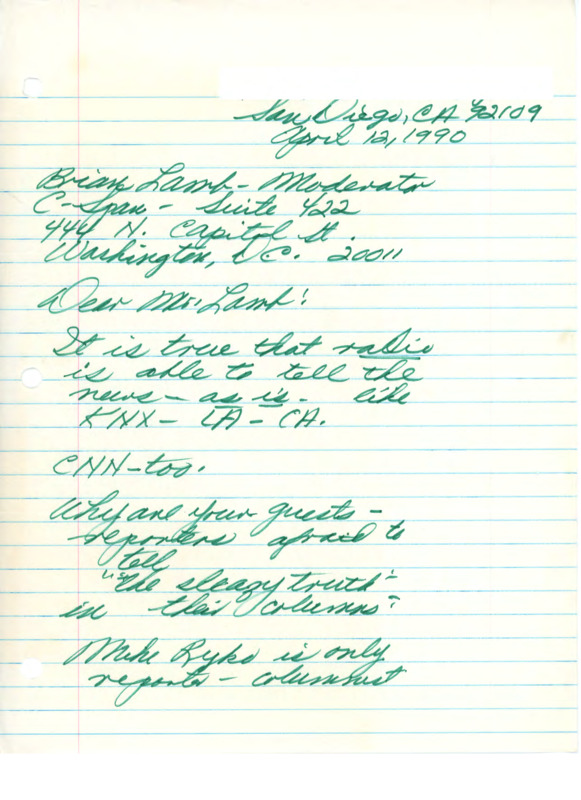 San Diego, CA 92109
April 12, 1990
Brian Lamb - Moderator
C-Span - Suite 422
444 N. Capitol St.
Washington, D.C. 20011
Dear Mr. Lamb:
It is true that radio
is able to tell the
news - as is - like
KNX - LA - CA.
CNN - too.
Why are your guests -
reporters afraid to
tell
"the sleazy truth"
in their columns?
Mike Ryko is only
reporter - columnist